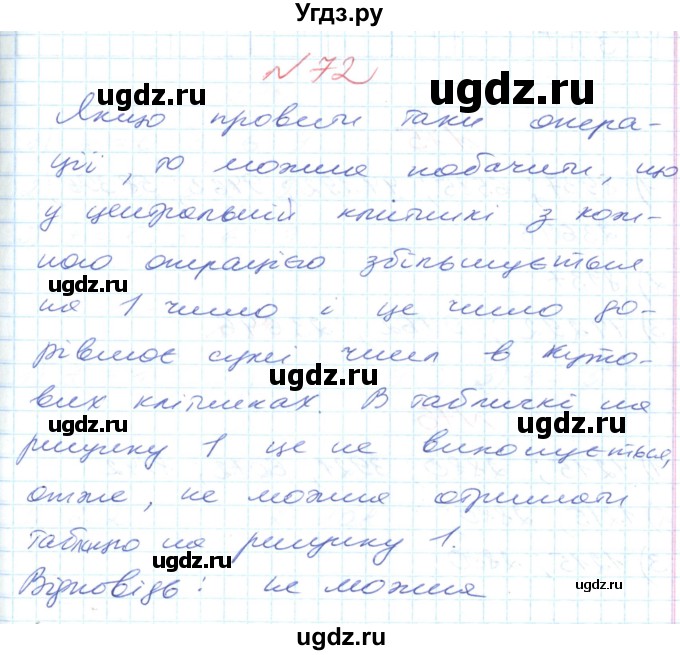 Угдз.ру
№72
ugdz.ru ugdz.ru
Якщо провести таки опера-
ції, то можна побачити, що
у центральній клітинкі з кож-
ною операцією збільшується
ugdz.ru
на 1 число і це число до-
рівнює сумі чисел в куто-
ugdz.ru
вих клітинках. В табличкі на
ugdz.ru
рисунку 1 це не виконується,
отже, не можна отримати
таблицю на рисунку 1.
ugdz.ru ugdz.ru
Відповідь: не можна
ugdz.ru